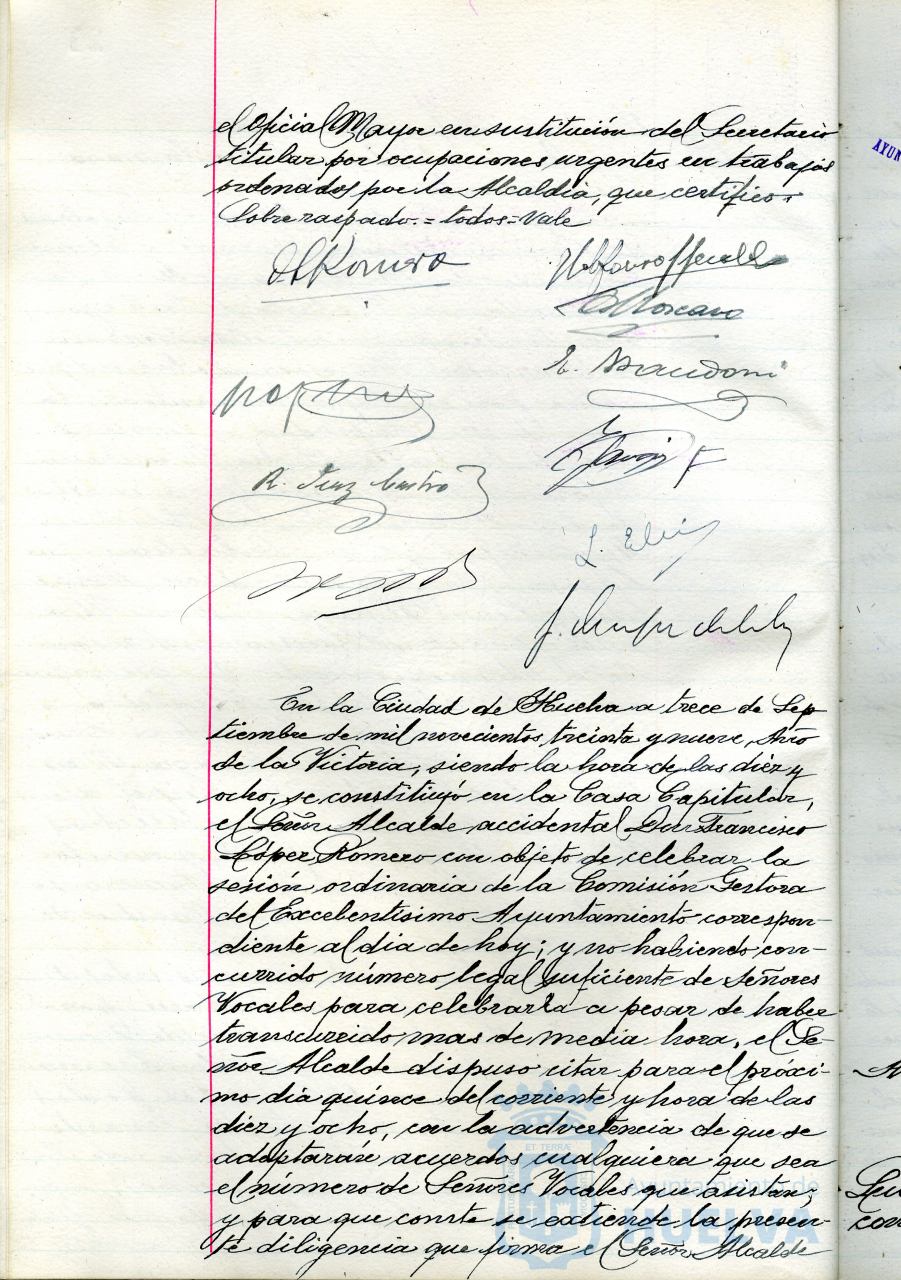 el Oficial Mayor en sustitución del Secretario
titular por ocupaciones urgentes en trabajos
ordenados por la Alcaldia, que certifico.
Sobreraspado.=todos=Vale
R. Romero
E. Mandoni
R. Diaz Castro
En la Ciudad de Huelva a trece de Sep
tiembre de mil novecientos treinta y nueve, Año
de la Victoria, siendo la hora de las diez y
ocho, se constituyó en la Casa Capitular,
el Señor Alcalde accidental Don Francisco
López Romero con objeto de celebrar la
sesión ordinaria de la Comisión Gestora
del Excelentisimo Ayuntamiento correspon-
diente al dia de hoy; y no habiendo con-
currido número legal suficiente de Señores
Vocales para celebrarla a pesar de haber
transcurrido mas de media hora, el Se-
ñor Alcalde dispuso citar para el próxi-
mo dia quince del corriente y hora de las
diez y ocho, con la advertencia de que se
adoptarán acuerdos cualquiera que sea
el número de Señores Vocales que asistan;
y para que conste se extiende la presen-
te diligencia que firma el Señor Alcalde
ET TERRÆ
Ayuntamiento de
HUELVA
AYUN
con